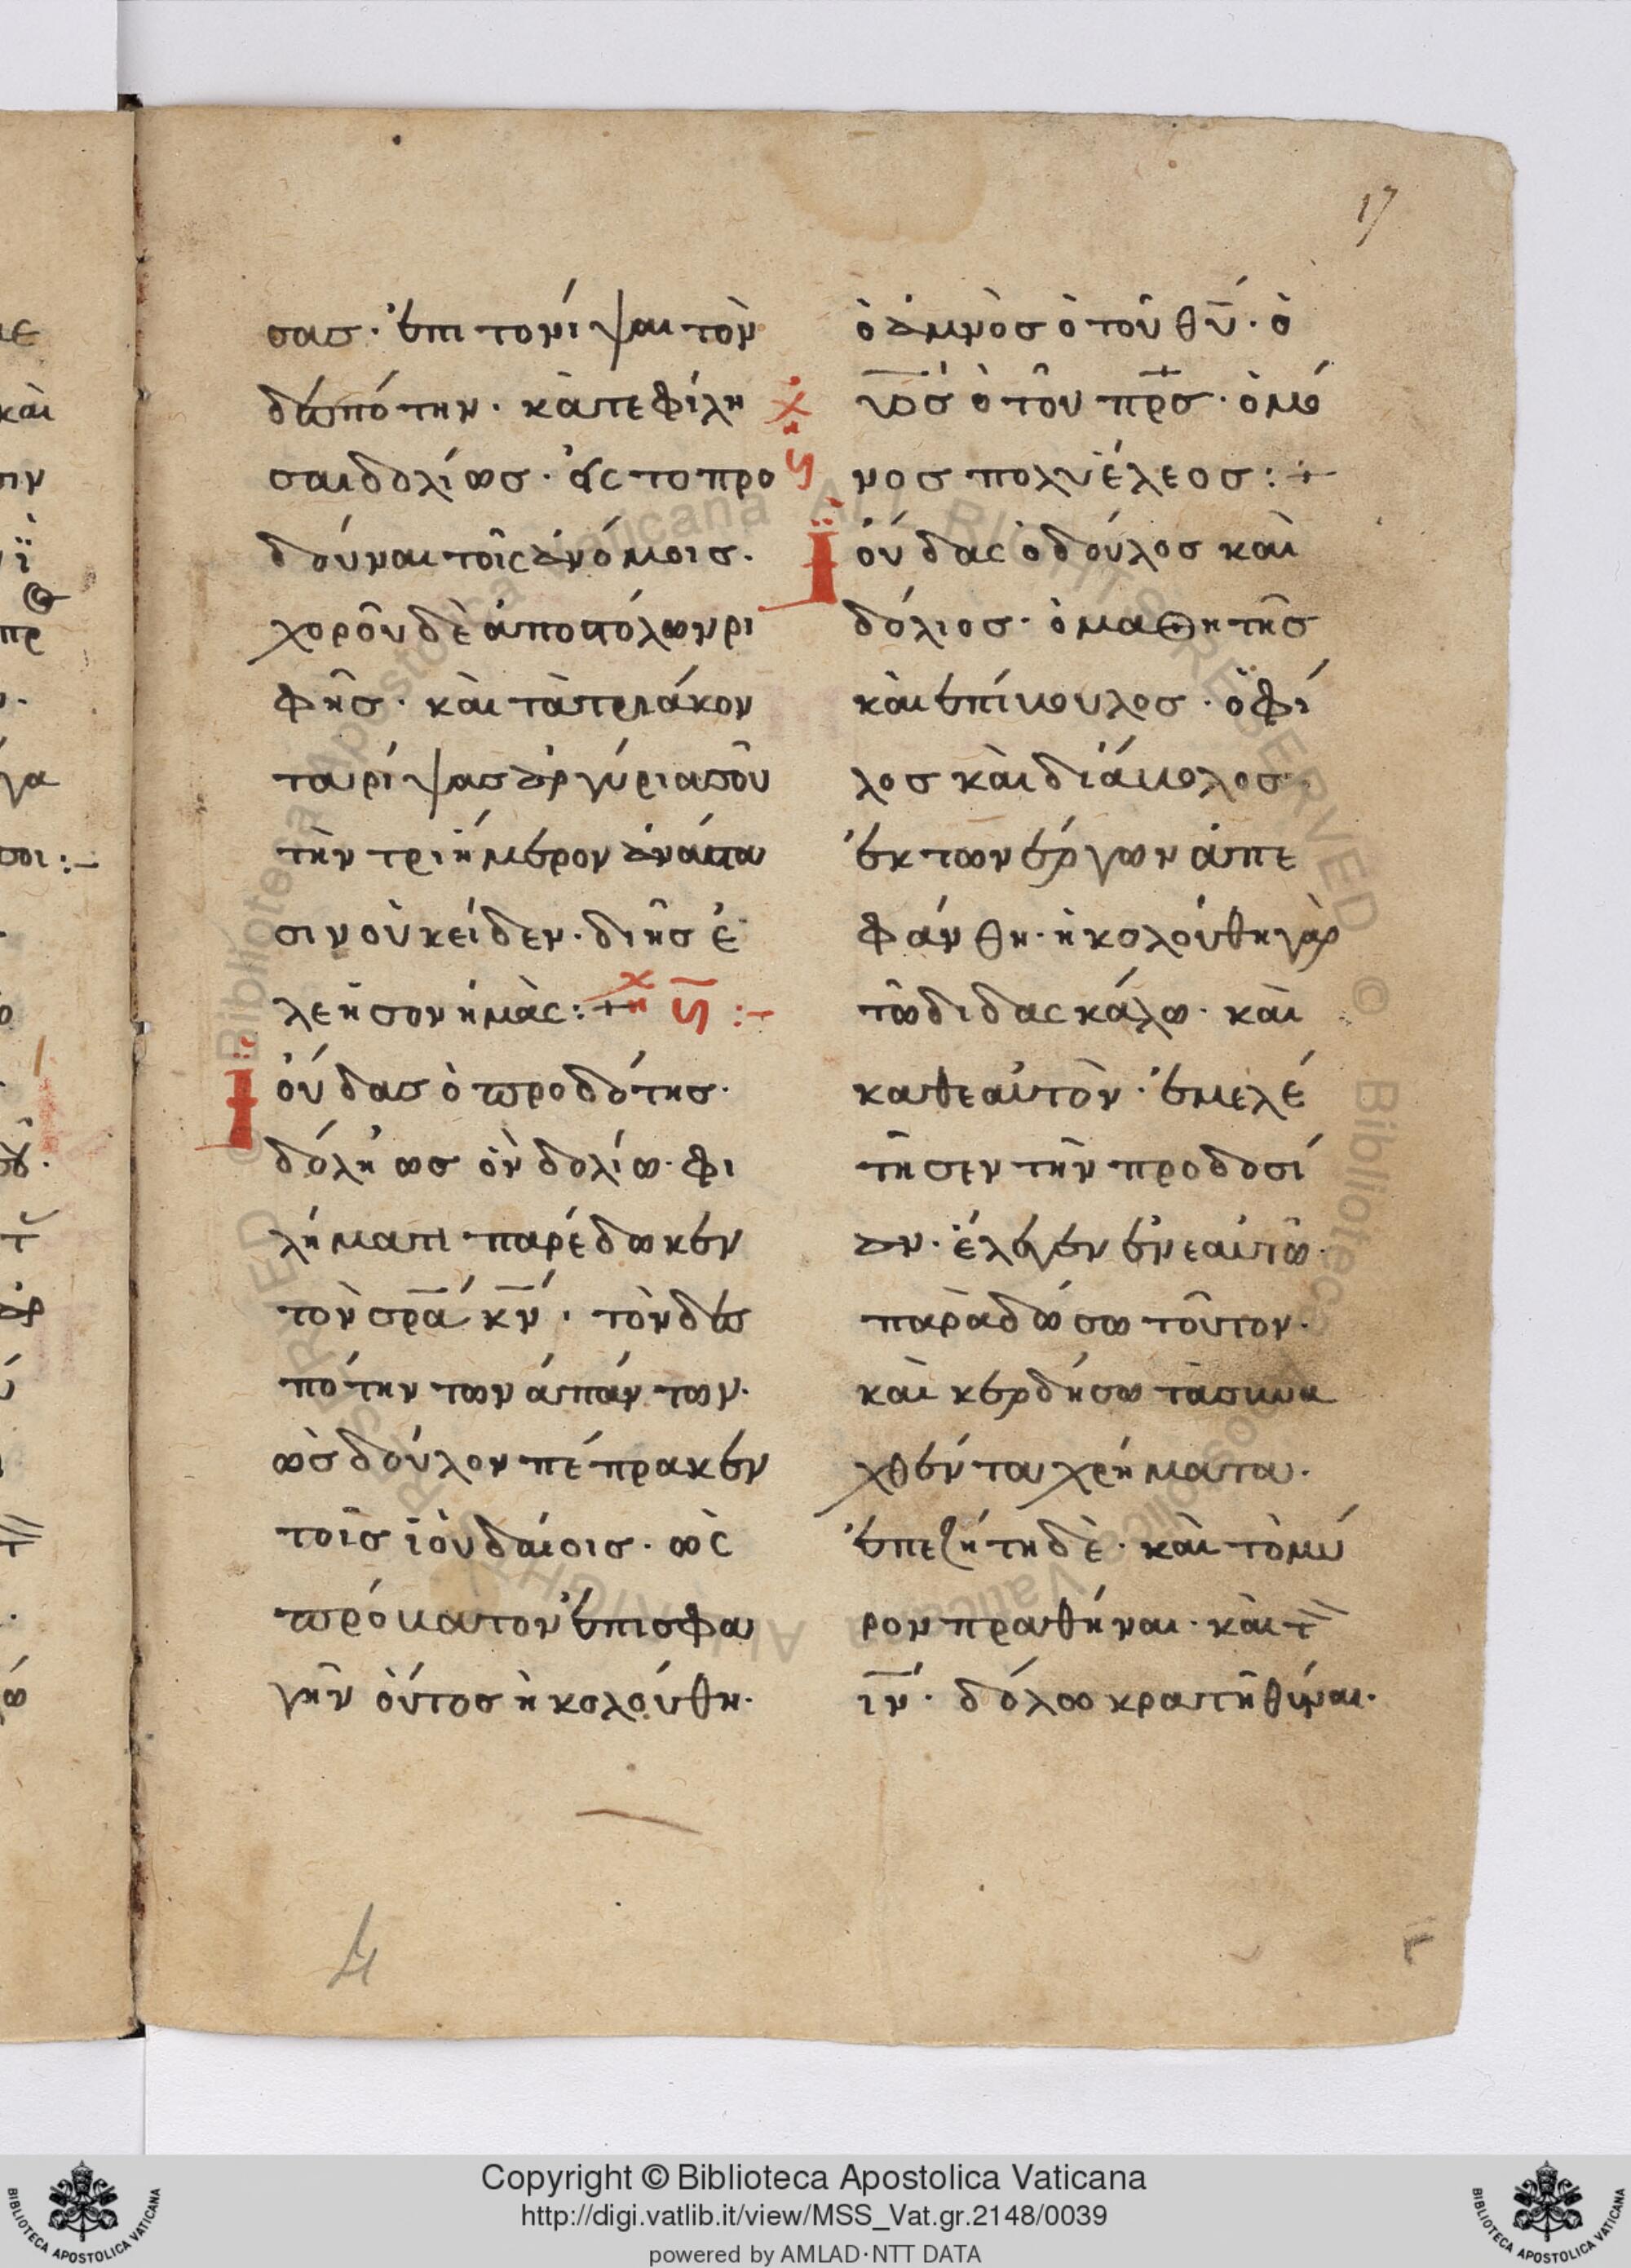 17
σας· ἐπι το νίψαι τὸν
δεσπότην· κατεφίλη
σαι δολίως· εἰς το προ
δούναι τοῖς ἀνόμοις·
χοροῦ δὲ ἀποστόλων ρι
φῆς· καὶ τὰ τριάκον
τα ρίψας ἀργύρια σοῦ
τὴν τριήμερον ἀνάστα
σιν οὐκ είδεν· δι ῆς ἐ
λεῆσον ἡμὰς:+ ἦχ ς̅ :-
Ϊούδας ὁ προδότης·
δόλιἠ ως ὀν δολίω· φι
λήματι παρέδωκεν
τὸν σρ̅α κ̅ν· τὸν δεσ
πότην των ἁπάντων·
ὡς δούλον πέπρακεν
τοῖς ϊουδαίοις· ὡς
πρόβατον ἐπι σφα
γὴν οὑτος ἠκολούθη·
ὁ ἀμνὸς ὁ τοῦ θ̅υ· ὁ
υ̅ς ὁ τοῦ π̅ρς· ὁ μό
νος πολυέλεος:+
ἦχ ς
Ϊούδας ὁ δούλος καὶ
δόλιος· ὁ μαθητῆς
καὶ επίβουλος· ὁ φί
λος καὶ διάβολος·
ἐκ των έργων ἀπε
φάνθη· ἠκολούθη γὰρ
τῶ διδασκάλω· καὶ
καθεαὐτὸν· ἐμελέ
τῆσεν τὴν προδοσί
αν· έλεγεν ἐν εαὐτῶ·
παραδώσω τοῦτον·
καὶ κερδήσω τὰ συνα
χθέντα χρήματα·
ἐπεζήτη δὲ· καὶ τὸ μύ
ρον πραθήναι· καὶ τ
ι̅ν· δόλω κρατῆθήναι·
Copyright © Biblioteca Apostolica Vaticana
http://digi.vatlib.it/view/MSS_Vat.gr.2148/0039
powered by AMLAD·NTT DATA
BIBLIOTECA APOSTOLICA VATICANA
BIBLIOTECA APOSTOLICA VATICANA